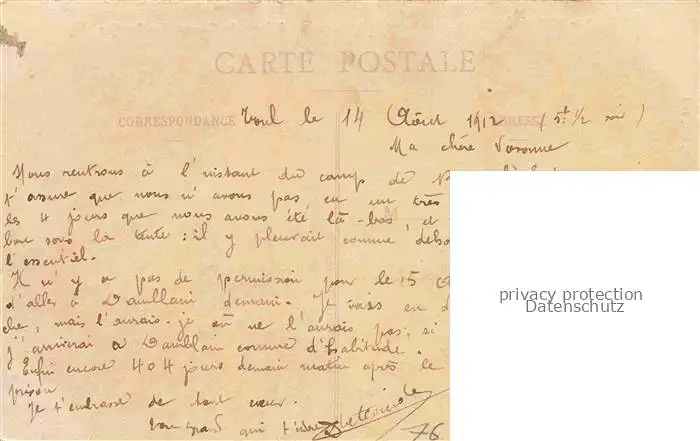 CARTE POSTALE
CORRESPONDANCE Toul le 14 Août 1912 ADRESSE (5h 1/2 soir)
Ma chère Yvonne
Nous rentrons à l'instant du camp de
t'assure que nous n'avons pas eu un très
les 4 jours que nous avons été là-bas, et
bon sous la tente: il y pleuvait comme deho
l'essentiel.
Il n'y a pas de permission pour le 15 A
d'aller à Damblain demain. Je vais en d
che, mais l'aurais-je où ne l'aurais pas, si
j'arriverai à Damblain comme d'habitude.
Enfin encore 404 jours demain matin après le
Je t'embrasse de tout cœur.
Ton grand qui t'
76
privacy protection
Datenschutz